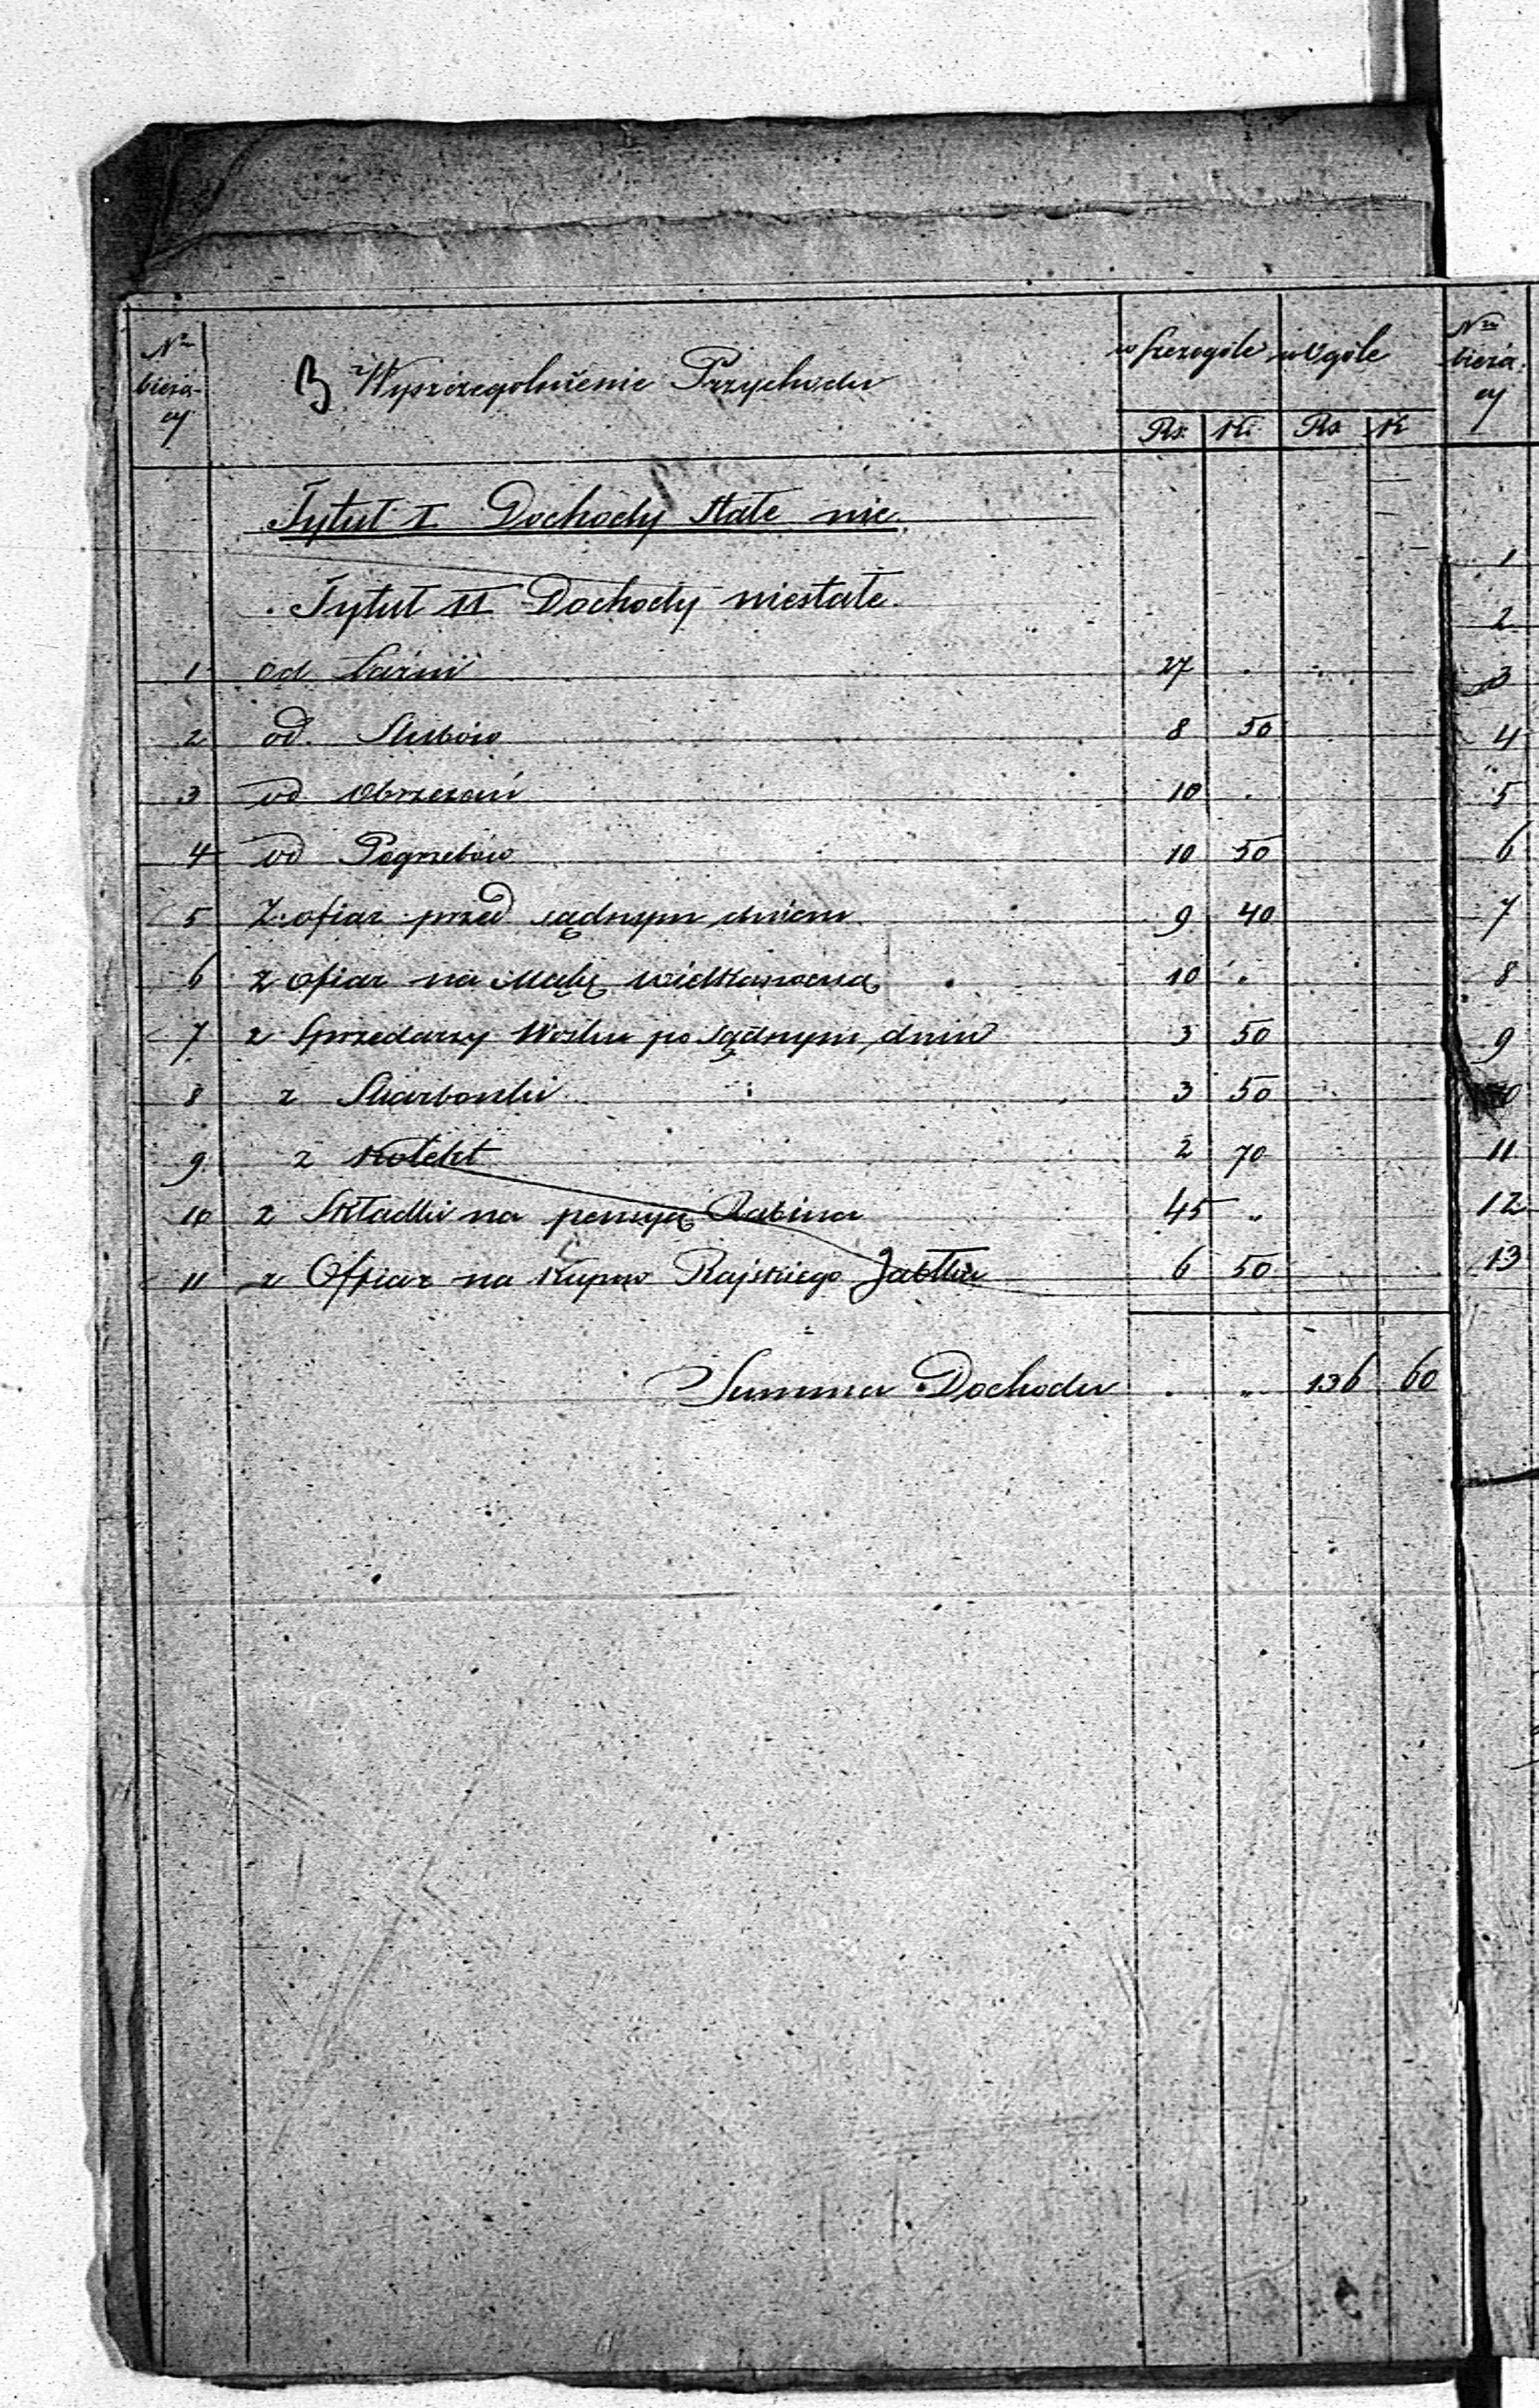 Nr bieżący B Wyszczegolnienie Przychodu w szczegole w Ogóle
Rs. K. Rs. K
Tytuł I Dochody Stałe nic.
Tytuł II Dochody niestałe.
1 od Łazni 27 .
2 od Slubow 8 50
3 od Obrzezań 10 .
4 od Pogrzebow 10 50
5 Z ofiar przed sądnym dniem 9 40
6 z ofiar na Mąkę wielkanocną 10 "
7 z Sprzedarzy Wosku po Sądnym dniu 3 50
8 z Skarbonki 3 50
9 z Kolekt 2 70
10 z Składki na pensyę Rabina 45 "
11 z Offiar na Kupno Rajskiego Jabłka 6 50
Summa Dochodu . " 136 60
Nr bieżący
1
2
3
4
5
6
7
8
9
10
11
12
13